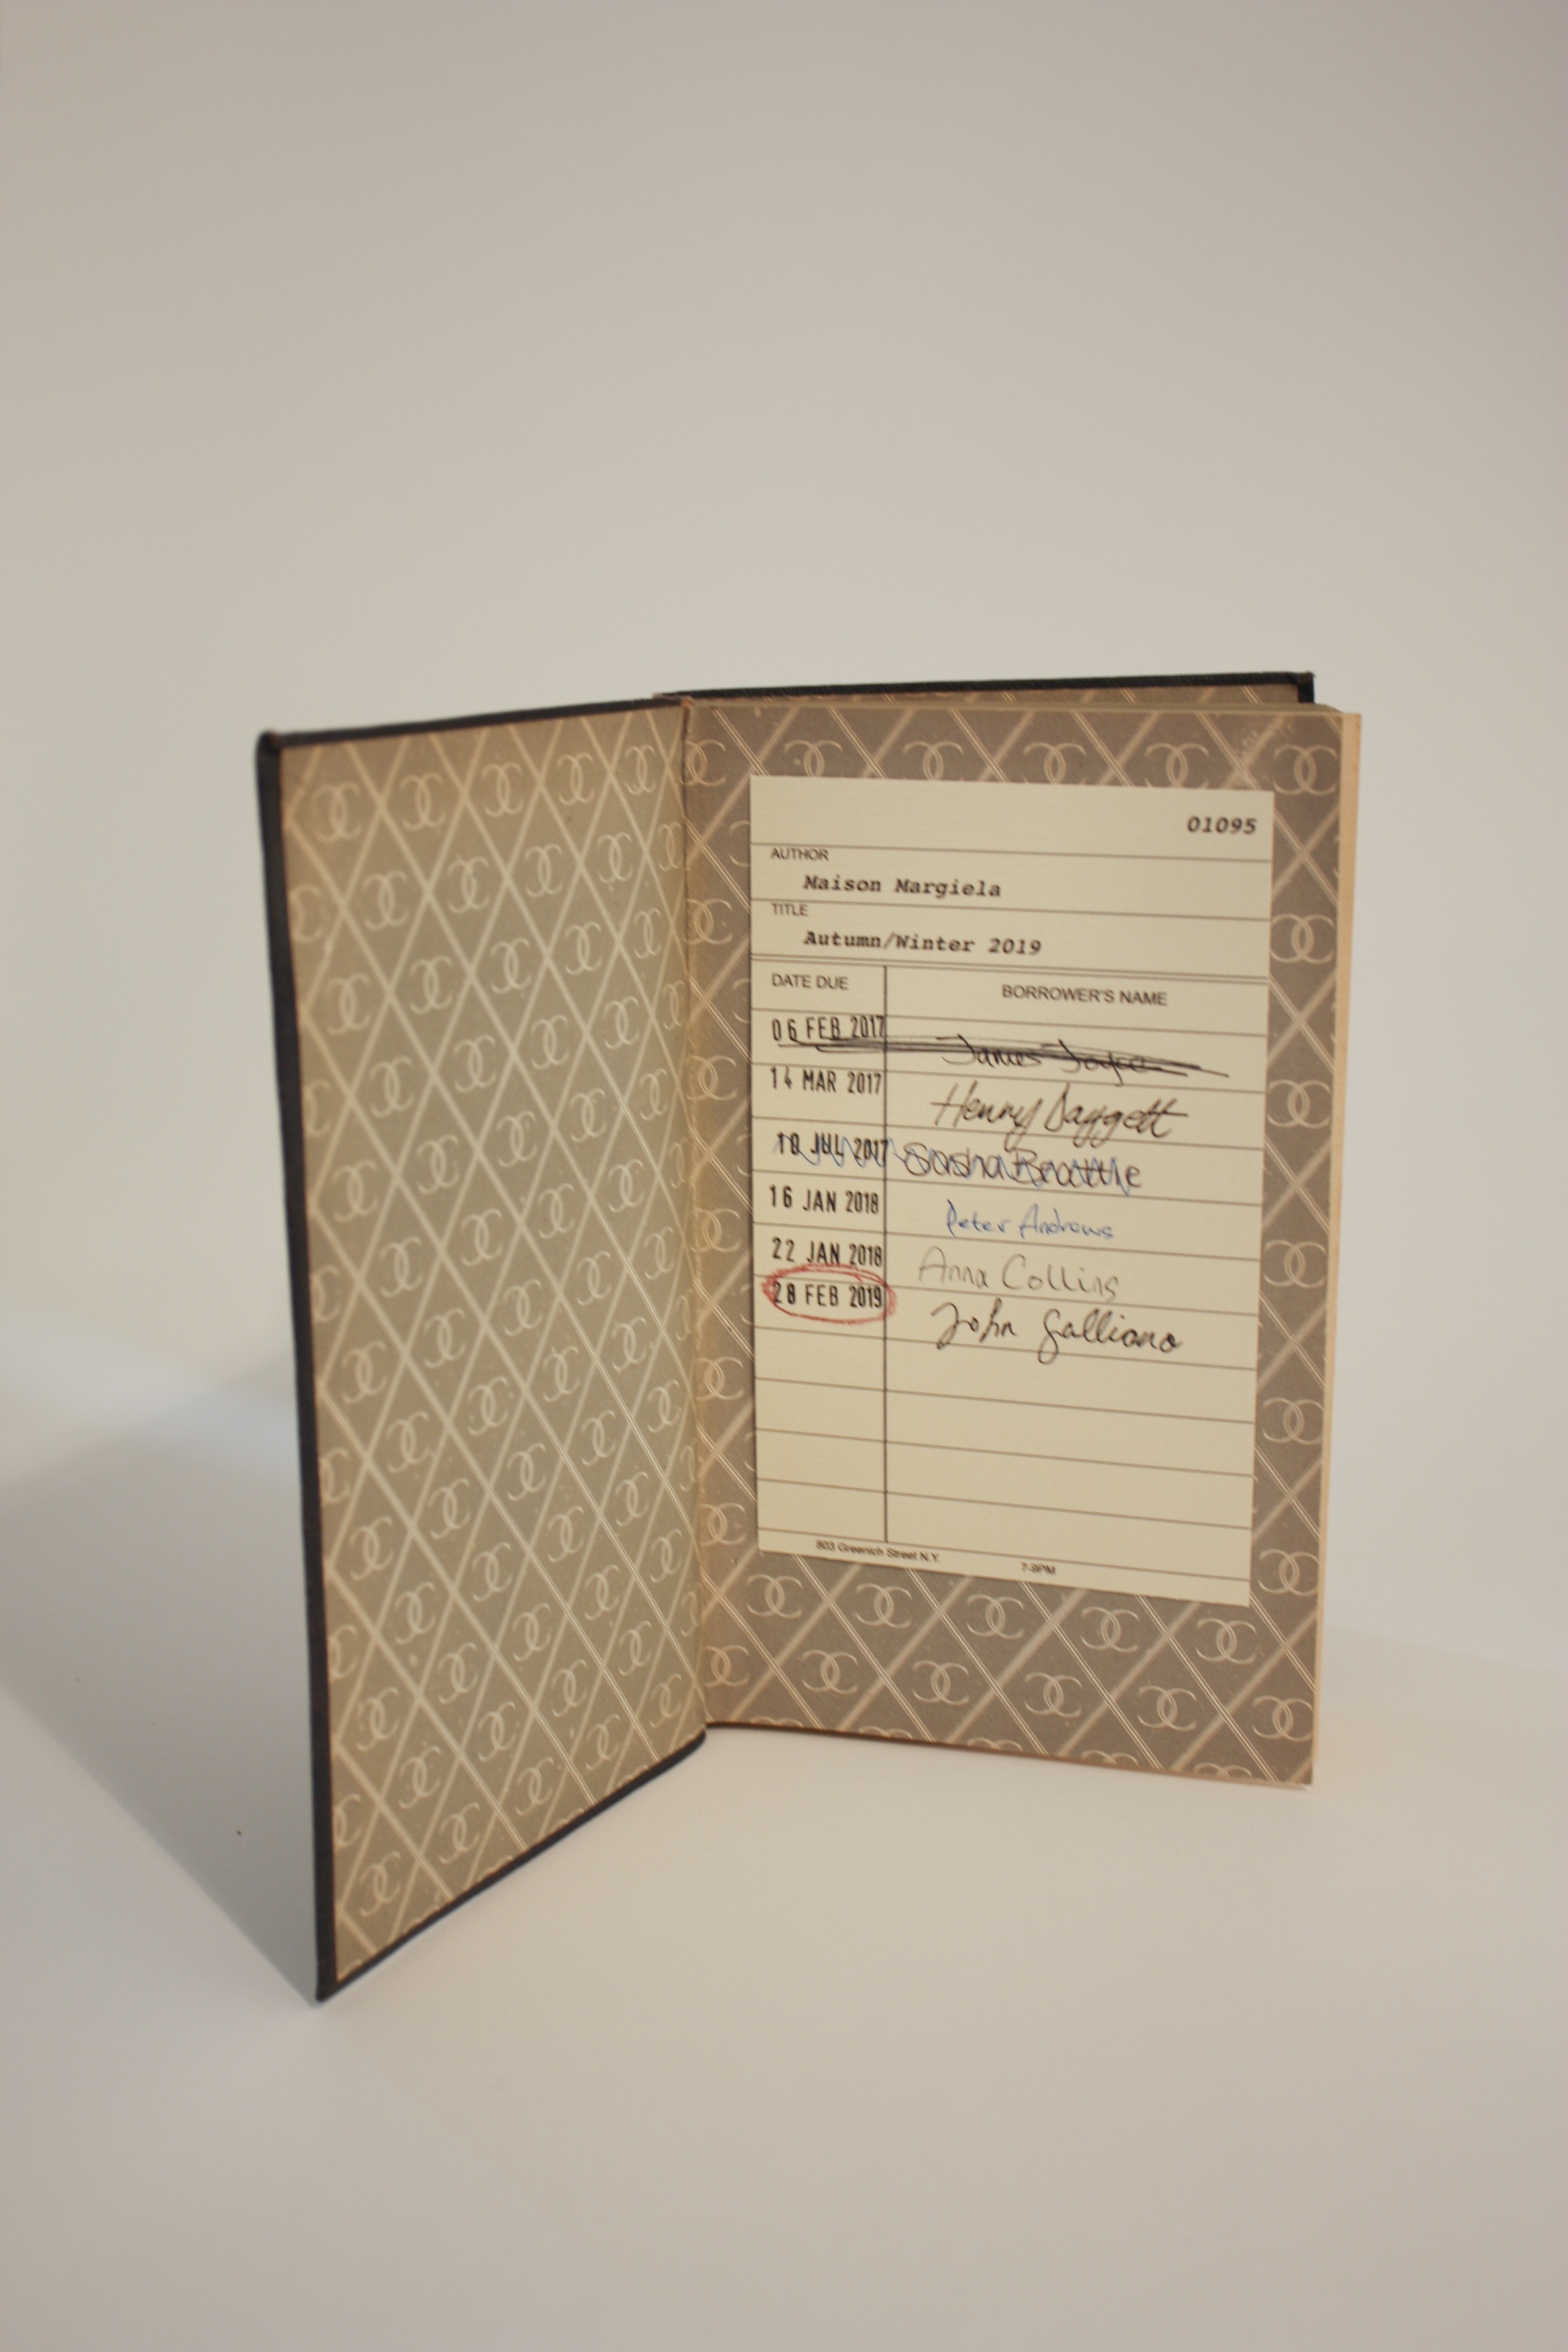 01095
AUTHOR
Maison Margiela
TITLE
Autumn/Winter 2019
DATE DUE BORROWER'S NAME
06 FEB 2017 James Joyce
14 MAR 2017 Henry Daggett
JUL 2017
16 JAN 2018 Peter Andrews
22 JAN 2018 Anna Collins
28 FEB 2019 John Galliano
803 Greenich Street N.Y. 7-9PM